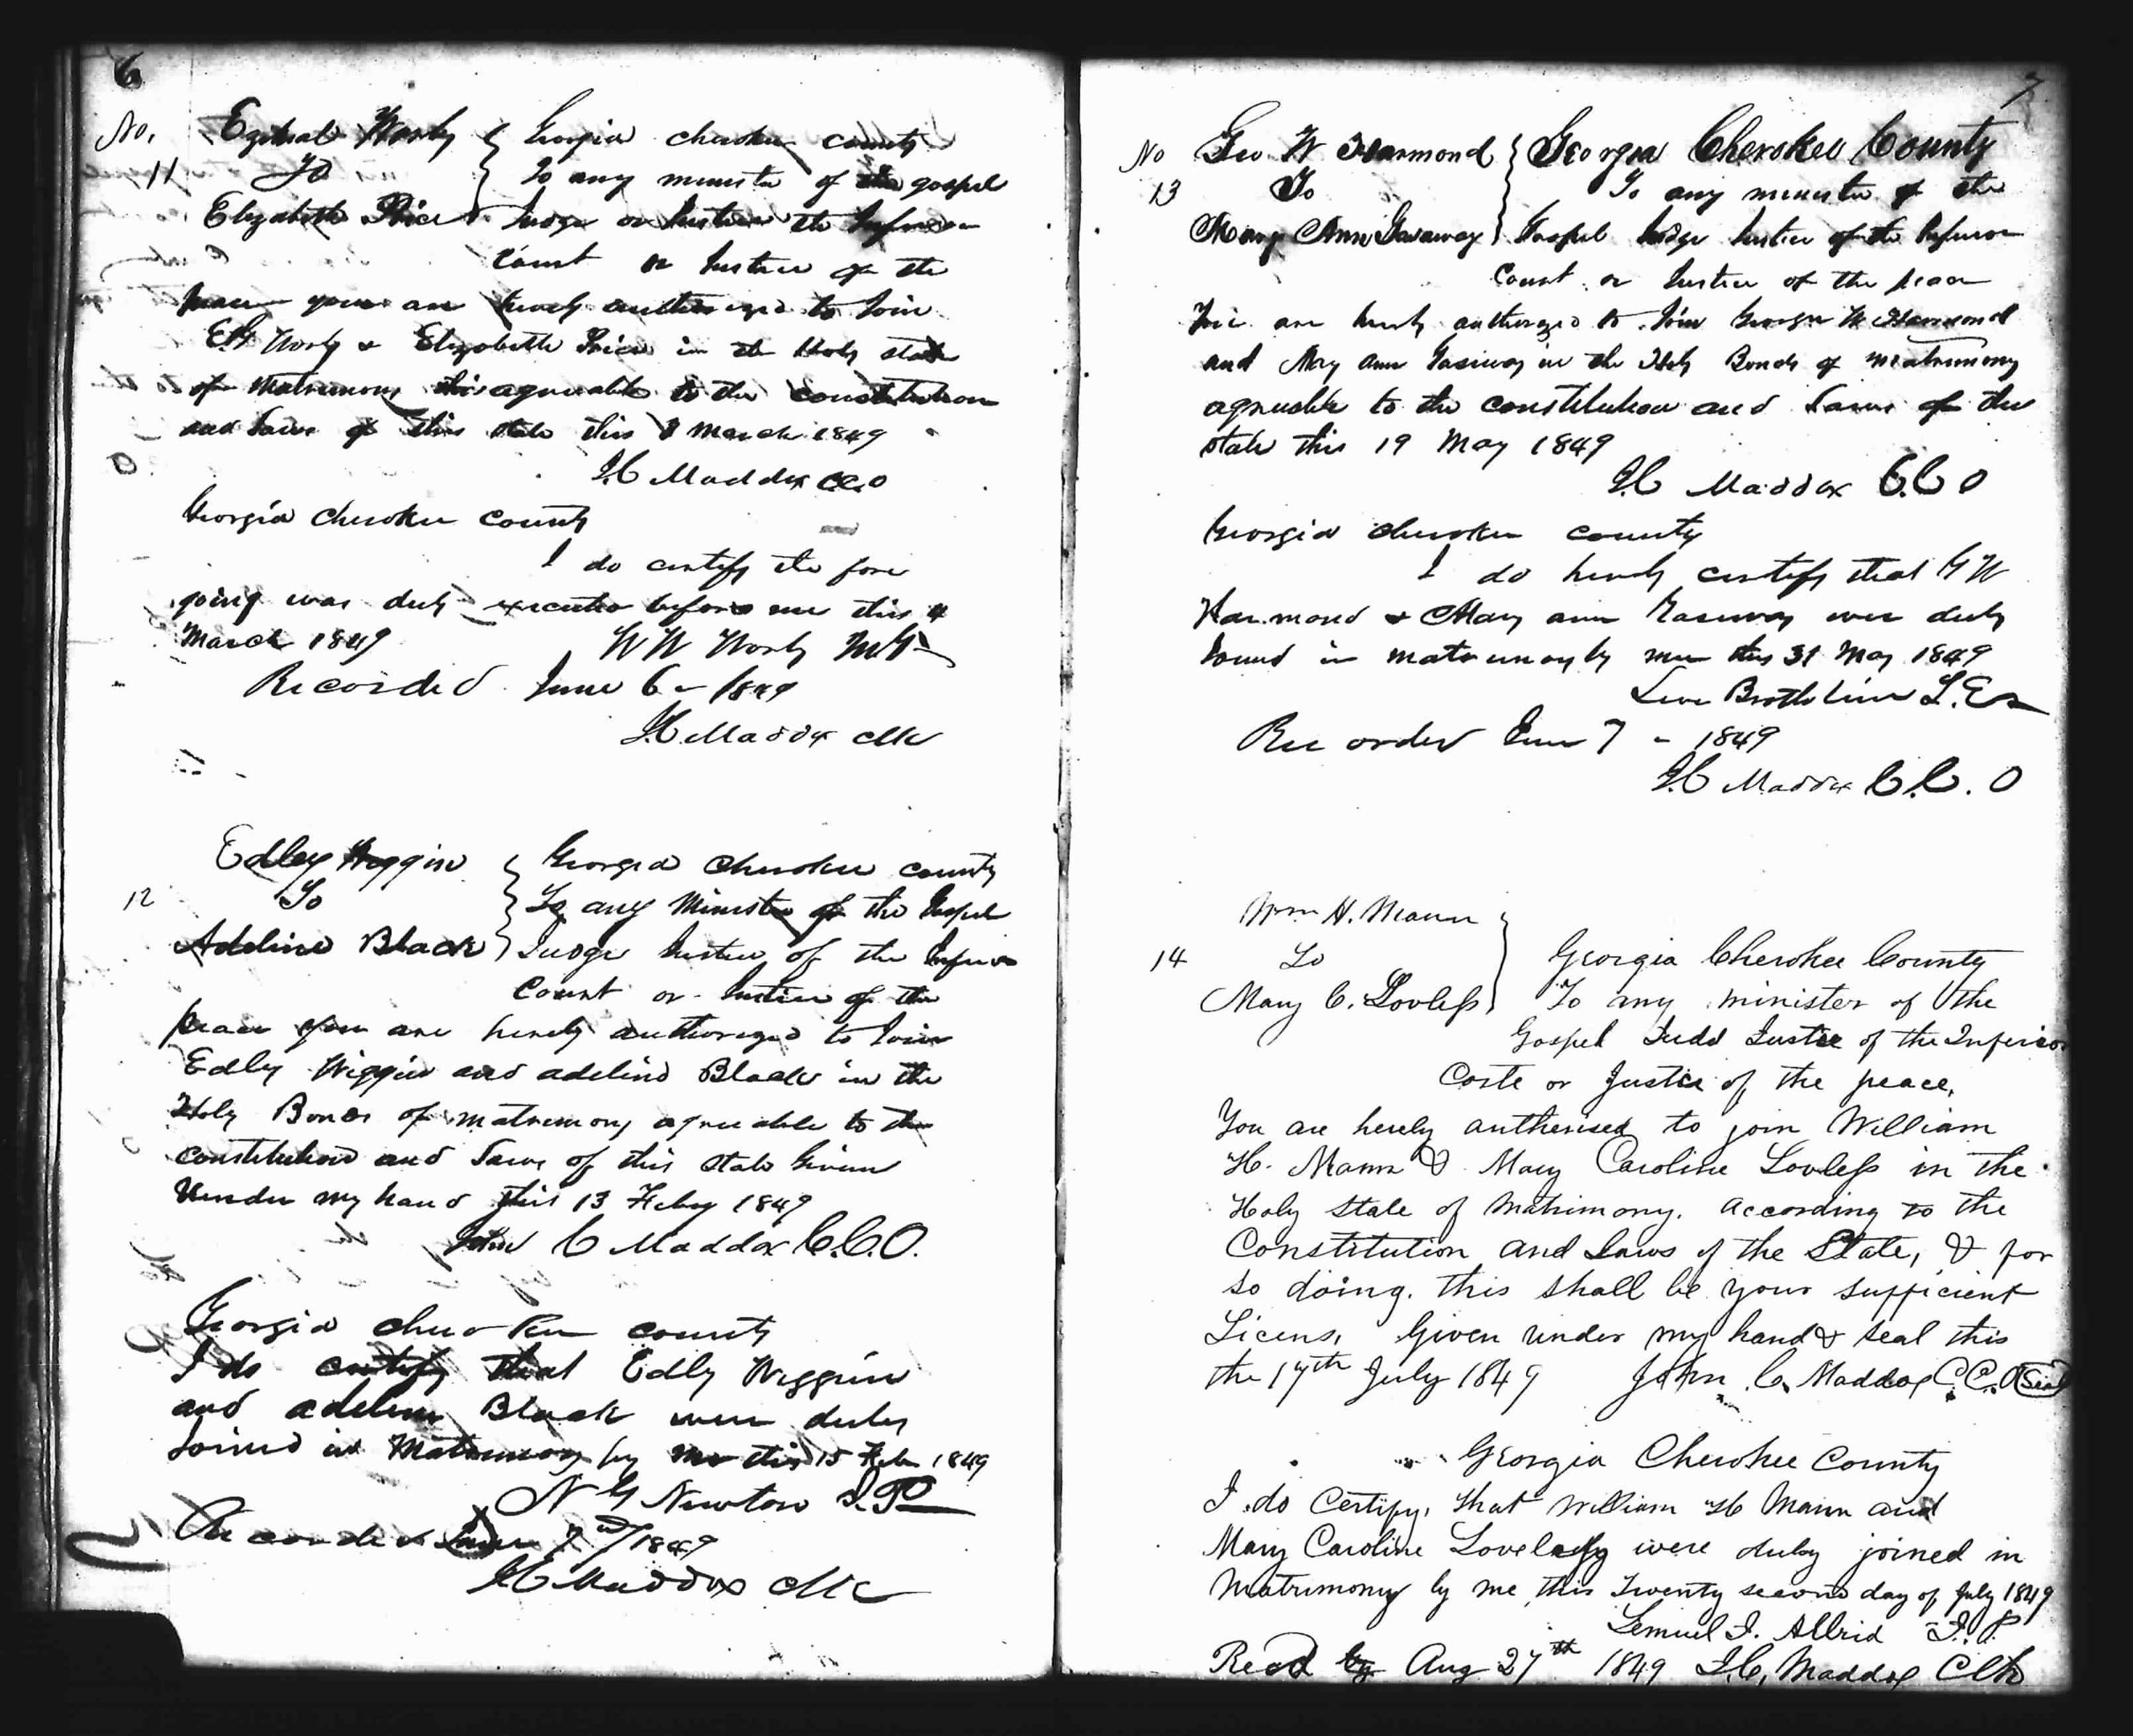 6
No. Ezekeal Worly { Georgia Cherokee county
11 To { To any minister of the gospel
Elizabeth Price } Judge or Justice the Inferior
Court or Justice of the
peace you are hereby authorized to Join
E Worly & Elizabeth Price in the Holy state
of Matrimony agreeable to the constitution
and Laws of this state this March 1849
J C Maddox C.C.O
Georgia Cherokee County
I do certify the fore
going was duly executed before me this 4
March 1849 W W Worly M.G.
Recorded June 6 - 1849
J.C. Maddox Clk
Edley Wiggin { Georgia Cherokee county
12 To { To any Minister of the Gospel
Adeline Black } Judge Justice of the Inferior
Court or Justice of the
peace you are hereby authorized to Join
Edly Wiggin and adeline Black in the
Holy Bonds of matrimony agreeable to the
constitution and Laws of this state Given
Under my hand this 13 Feby 1849
John C Maddox C.C.O.
Georgia Cherokee county
I do certify that Edly Wiggin
and adeline Black were duly
Joined in Matrimony by me this 15 Feb 1849
N G Newton J.P
Recorded June 7 1849
J C Maddox Clk
7
No Geo W Hammond } Georgia Cherokee County
13 To } To any minister of the
Mary Ann Gasaway } Gospel Judge Justice of the Inferior
Court or Justice of the peace
You are hereby authorized to Join George W Hammond
and Mary ann Gasaway in the Holy Bonds of matrimony
agreeable to the constitution and Laws of the
state this 19 May 1849
J C Maddox C.C O
Georgia Cherokee county
I do hereby certify that G W
Hammond & Mary ann Gasaway were duly
Joined in matrimony by me this 31 May 1849
Recorded June 7 - 1849
J C Maddox C.C. O
Wm H. Mann }
14 To } Georgia Cherokee County
Mary C. Lovless } To any minister of the
Gospel Judd Justice of the Inferior
Corte or Justice of the peace,
You are hereby autherised to join William
H. Mann & Mary Caroline Lovless in the
Holy State of Matrimony. According to the
Constitution and Laws of the State, & for
so doing. this shall be your sufficient
Licens, Given under my hand & seal this
the 17th July 1849 John C. Maddox C.C.O Seal
Georgia Cherokee County
I do Certify, that William H Mann and
Mary Caroline were duly joined in
Matrimony by me this Twenty second day of July 1849
Lemuel J. Allrid J.P.
Recd Aug 27th 1849 J.C, Maddox Clk